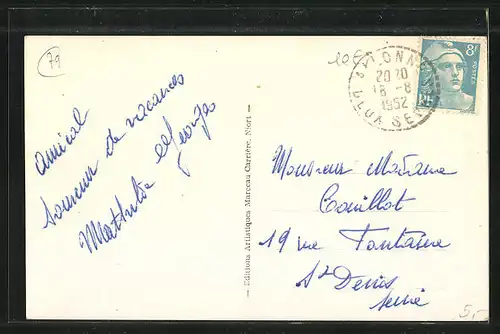 79
Amical
souvenir de vacances
Mathilde et Georges
— Editions Artistiques Marceau Carrière, Niort —
10€
20 20
18 -8
1952
DEUX SEVRES
8F
POSTES
Monsieur Madame
Couillot
19 rue Fontaine
St Denis
Seine
5,-